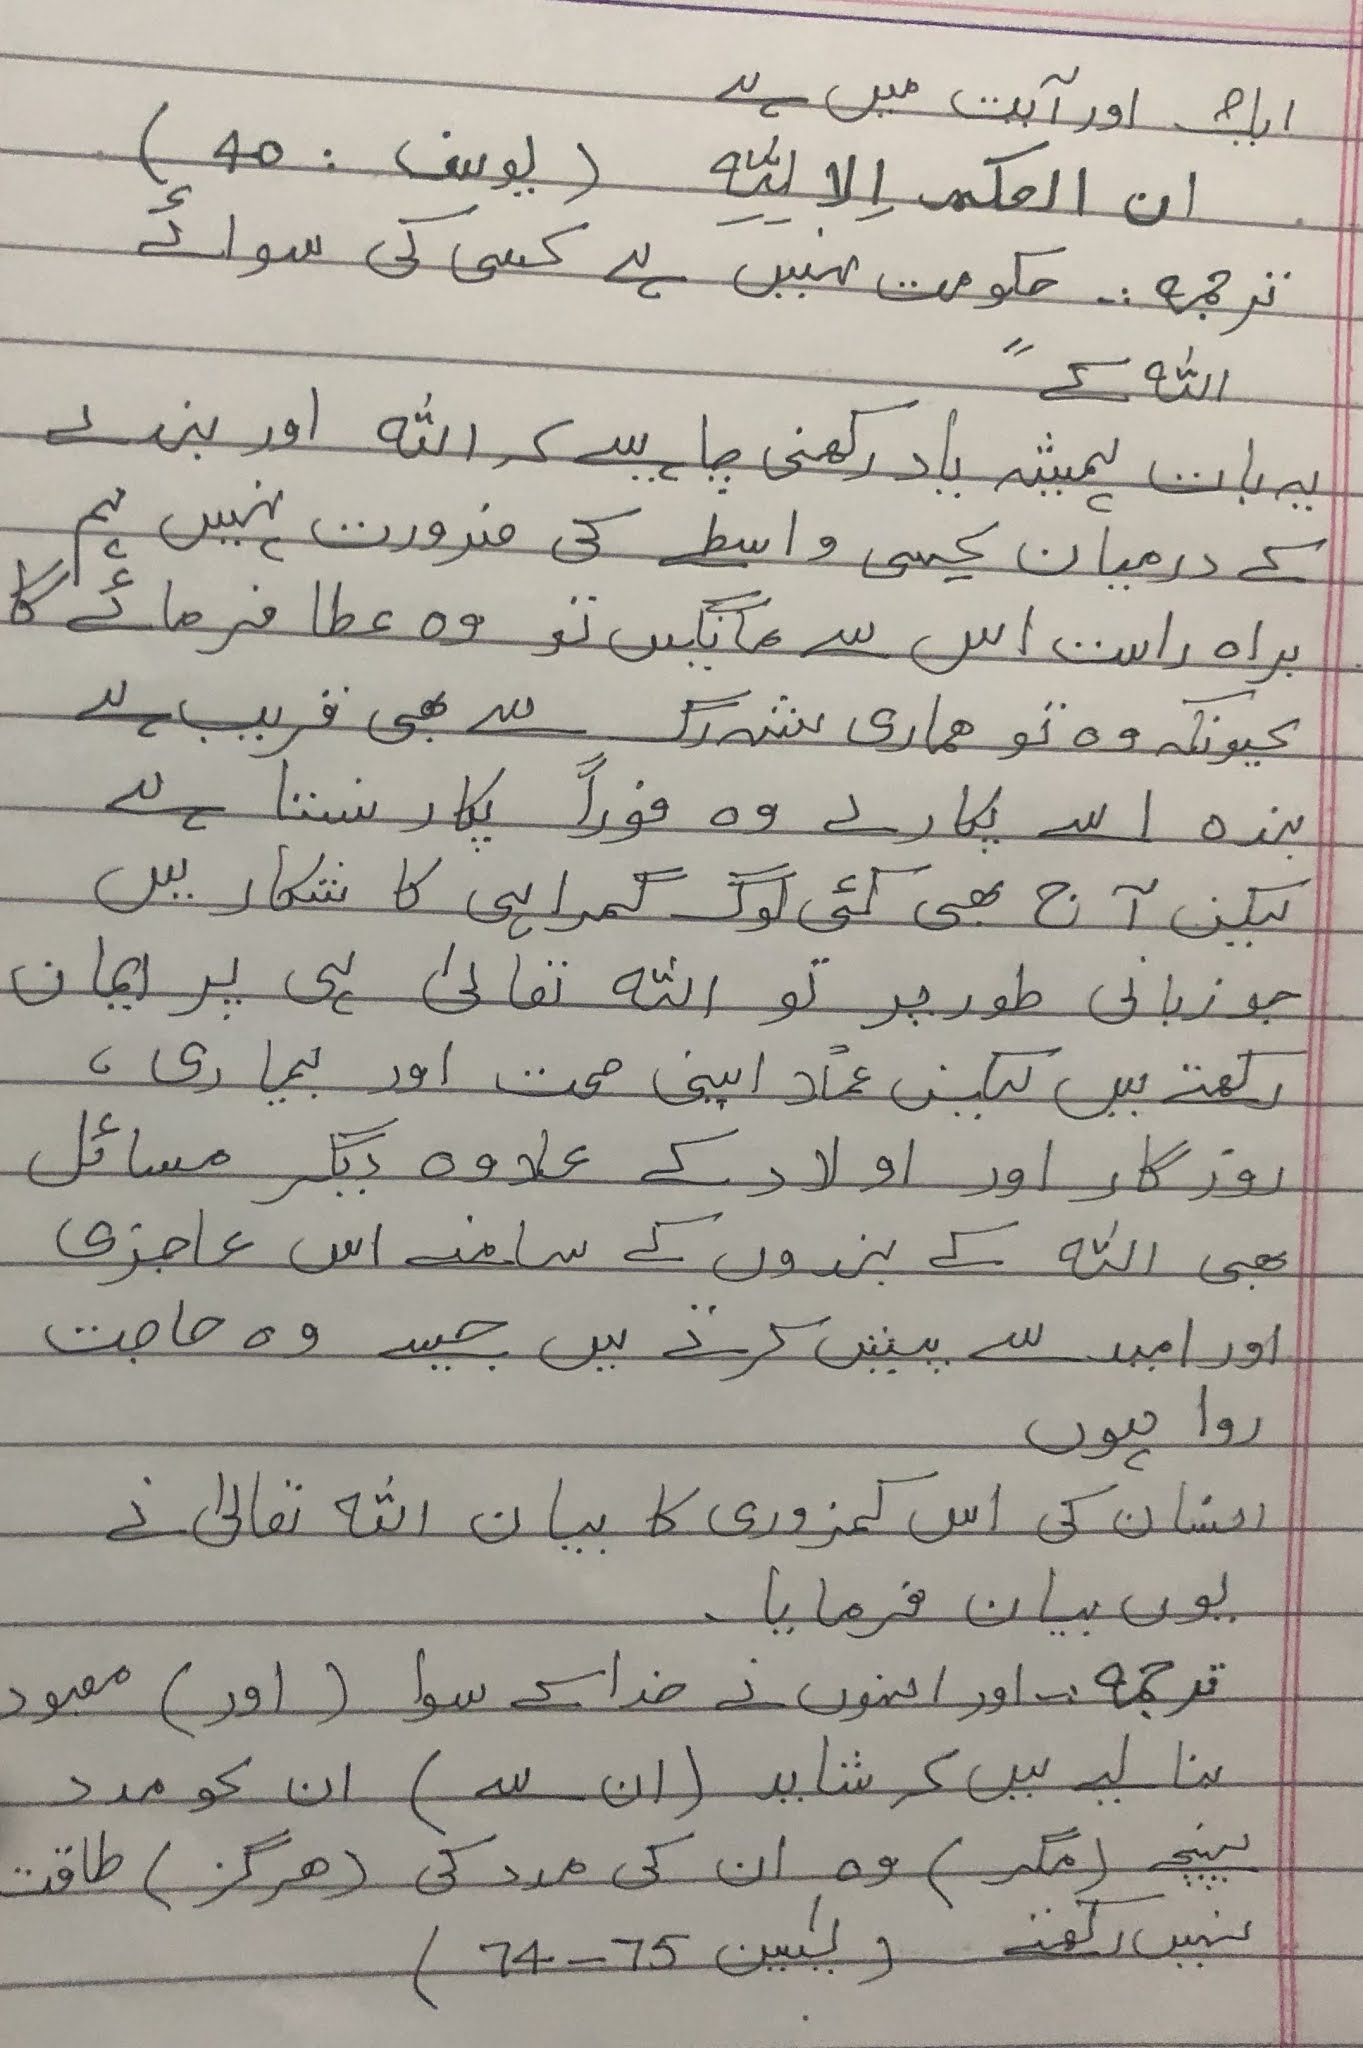 ایک اور آیت میں ہے
ان الحکم اِلا لِلّٰہِ (یوسف : 40)
ترجمہ :۔ حکومت نہیں ہے کسی کی سوائے
اللہ کے "
یہ بات ہمیشہ یاد رکھنی چاہیے کہ اللہ اور بندے
کے درمیان کسی واسطے کی ضرورت نہیں ہم
براہ راست اس سے مانگیں تو وہ عطا فرمائے گا
کیونکہ وہ تو ہماری شہ رگ سے بھی قریب ہے
بندہ اسے پکارے وہ فوراً پکار سنتا ہے
لیکن آج بھی کئی لوگ گمراہی کا شکار ہیں
جو زبانی طور پر تو اللہ تعالیٰ ہی پر ایمان
رکھتے ہیں لیکن عملاً اپنی صحت اور بیماری ،
روزگار اور اولاد کے علاوہ دیگر مسائل
بھی اللہ کے بندوں کے سامنے اس عاجزی
اور امید سے پیش کرتے ہیں جیسے وہ حاجت
روا ہوں
انسان کی اس کمزوری کا بیان اللہ تعالیٰ نے
یوں بیان فرمایا ۔
ترجمہ :۔ اور انہوں نے خدا کے سوا (اور) معبود
بنا لیے ہیں کہ شاید (ان سے) ان کو مدد
پہنچے (مگر) وہ ان کی مدد کی (ہرگز) طاقت
نہیں رکھتے (یٰسین 75-74)